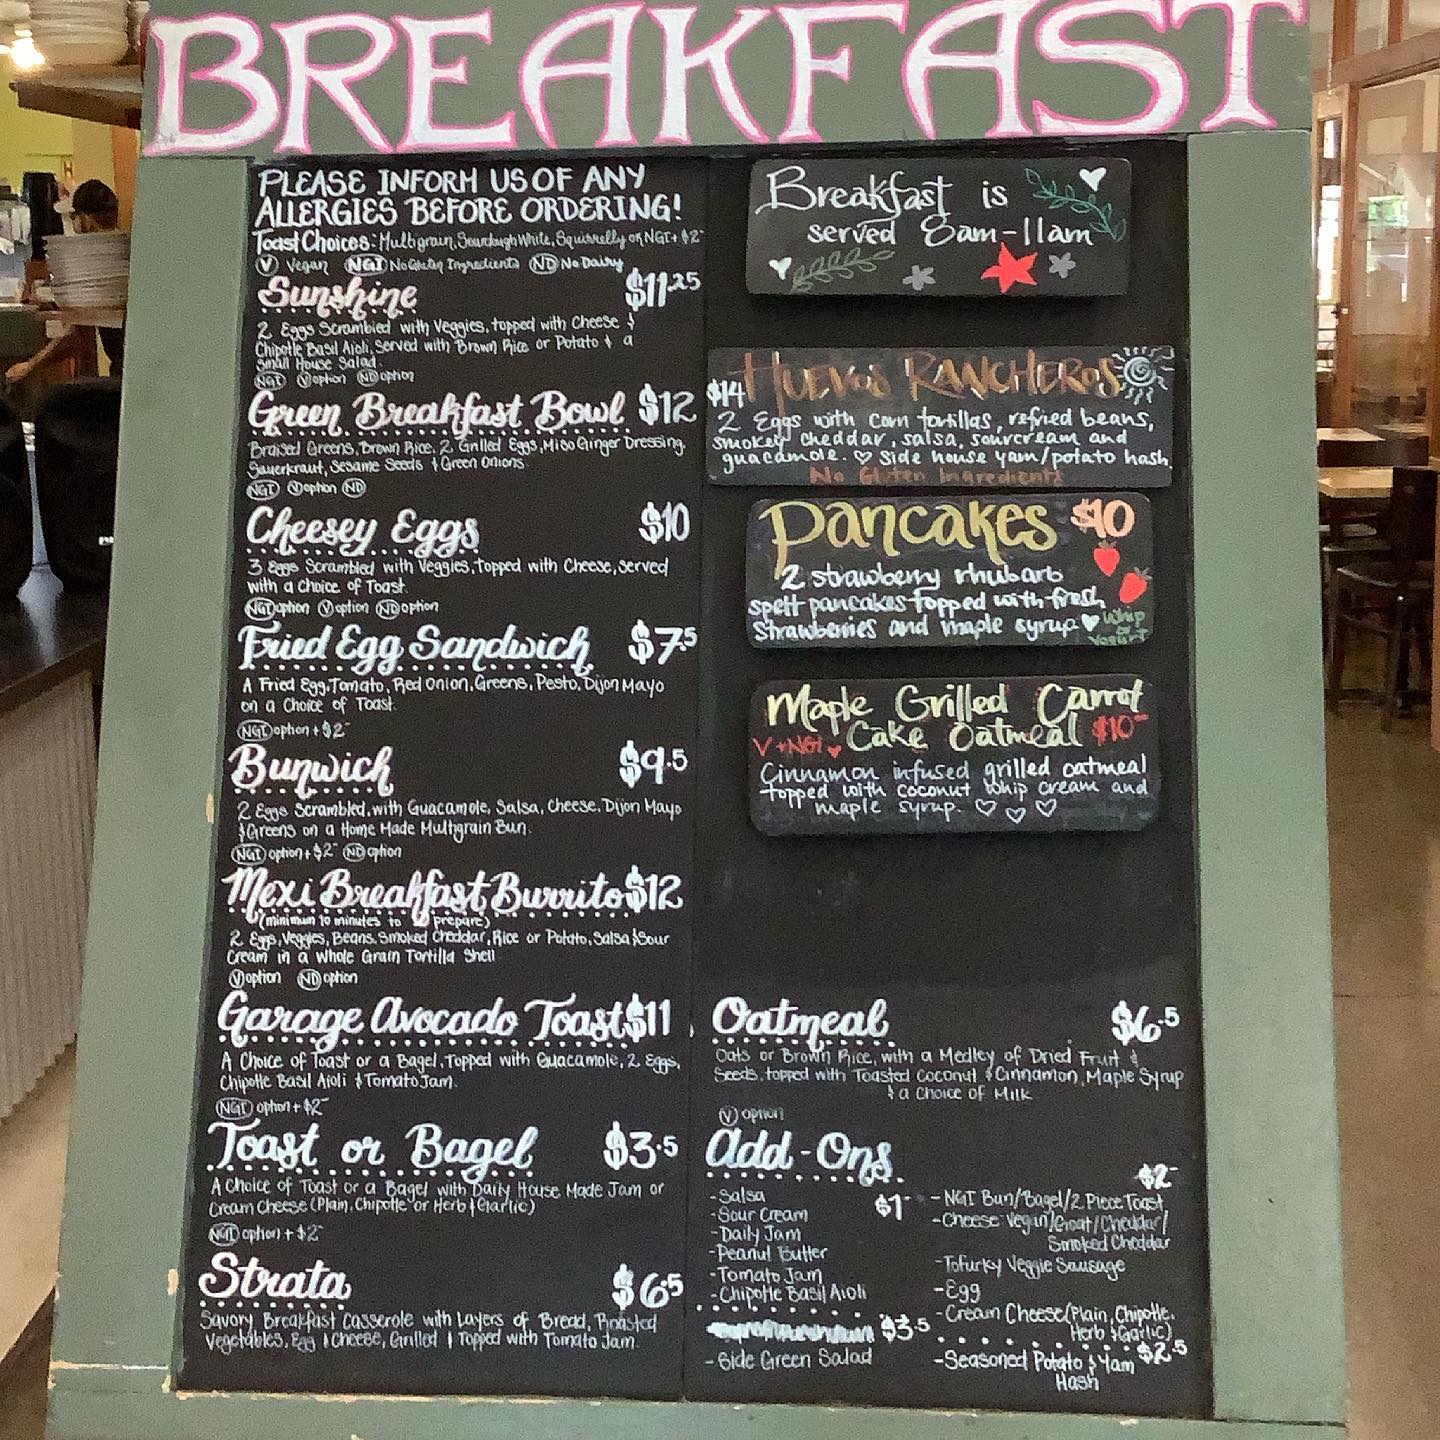 BREAKFAST
PLEASE INFORM US OF ANY
ALLERGIES BEFORE ORDERING!
Toast Choices: Multigrain, Sourdough White, Squirrelly or NGI + $2
V Vegan NGI No Gluten Ingredients ND No Dairy
Sunshine $11.25
2 Eggs Scrambled with Veggies, topped with Cheese &
Chipotle Basil Aioli, Served with Brown Rice or Potato & a
Small House Salad.
NGI V option ND option
Green Breakfast Bowl $12
Braised Greens, Brown Rice, 2 Grilled Eggs, Miso Ginger Dressing,
Sauerkraut, Sesame Seeds & Green Onions
NGI V option ND
Cheesey Eggs $10
3 Eggs Scrambled with Veggies, topped with Cheese, served
with a choice of Toast.
NGI option V option ND option
Fried Egg Sandwich $7.5
A Fried Egg, Tomato, Red Onion, Greens, Pesto, Dijon Mayo
on a Choice of Toast.
NGI option + $2
Bunwich $9.5
2 Eggs Scrambled, with Guacamole, Salsa, Cheese, Dijon Mayo
& Greens on a Home Made Multigrain Bun.
NGI option + $2 ND option
Mexi Breakfast Burrito $12
(minimum 10 minutes to prepare)
2 Eggs, Veggies, Beans, Smoked Cheddar, Rice or Potato, Salsa & Sour
Cream in a Whole Grain Tortilla Shell
V option ND option
Garage Avocado Toast $11
A Choice of Toast or a Bagel, Topped with Guacamole, 2 Eggs,
Chipotle Basil Aioli & Tomato Jam.
NGI option + $2
Toast or Bagel $3.5
A Choice of Toast or a Bagel with Daily House Made Jam or
Cream Cheese (Plain, Chipotle or Herb & Garlic)
NGI option + $2
Strata $6.5
Savory Breakfast Casserole with Layers of Bread, Roasted
Vegetables, Egg & Cheese, Grilled & Topped with Tomato Jam.
Breakfast is
served 8am-11am
$14 HUEVOS RANCHEROS
2 Eggs with corn tortillas, refried beans,
smokey cheddar, salsa, sourcream and
guacamole. ♡ Side house yam/potato hash.
No Gluten Ingredients
Pancakes $10
2 strawberry rhubarb
spelt pancakes topped with fresh
strawberries and maple syrup ♥ Whip
or
Yogurt
Maple Grilled Carrot
V + NGI ♥ Cake Oatmeal $10
Cinnamon infused grilled oatmeal
topped with coconut whip cream and
maple syrup. ♡ ♡ ♡
Oatmeal $6.5
Oats or Brown Rice, with a Medley of Dried Fruit &
Seeds, topped with Toasted Coconut & Cinnamon, Maple Syrup
& a choice of Milk
V option
Add-Ons
$1
-Salsa
-Sour Cream
-Daily Jam
-Peanut Butter
-Tomato Jam
-Chipotle Basil Aioli
$3.5
-Side Green Salad
$2
-NGI Bun/Bagel/2 Piece Toast
-Cheese: Vegan/Goat/Cheddar/
Smoked Cheddar
-Tofurky Veggie Sausage
-Egg
-Cream Cheese (Plain, Chipotle,
Herb & Garlic)
-Seasoned Potato & Yam $2.5
Hash